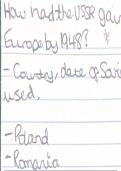 How had the USSR gai
Europe by 1948? *
- Country, date of Sovi
used.
- Poland
- Romania